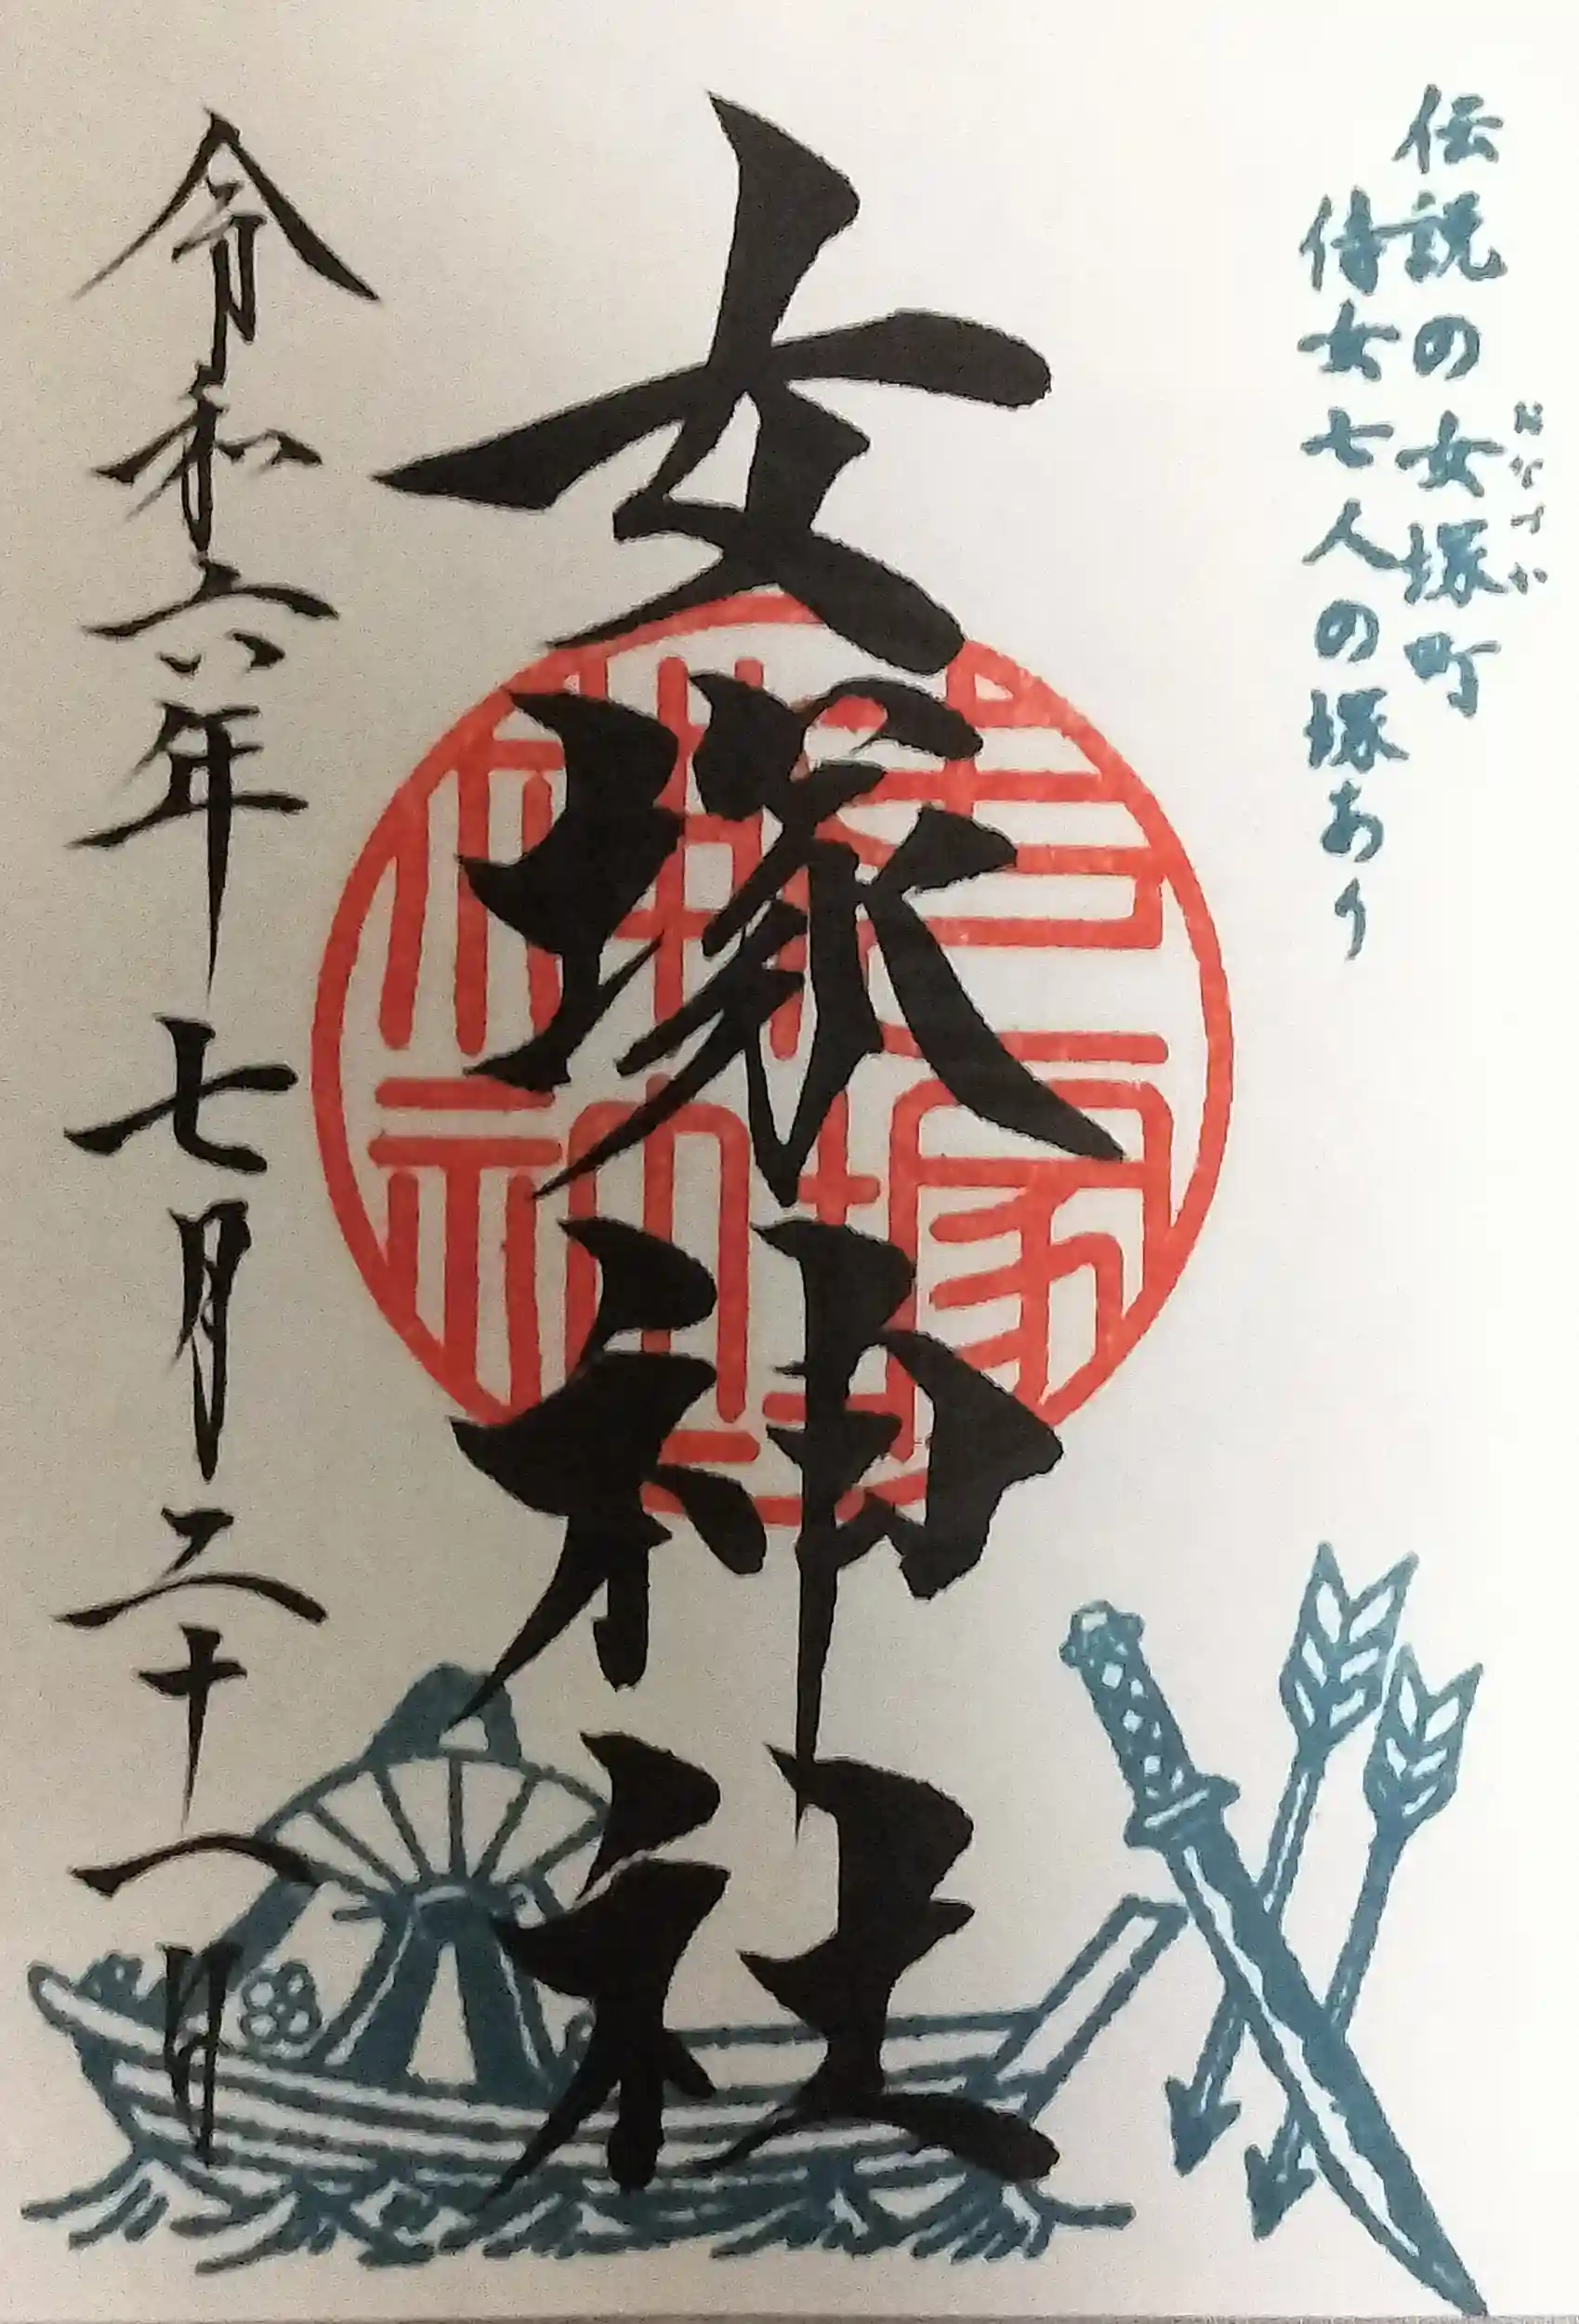 伝説の女塚町
おなづか
侍女七人の塚あり
女塚神社
女塚神社
令和六年七月二十一日